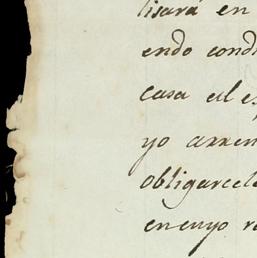 lisará en
endo cond
casa el es
yo arren
obligarcela
en cuyo re